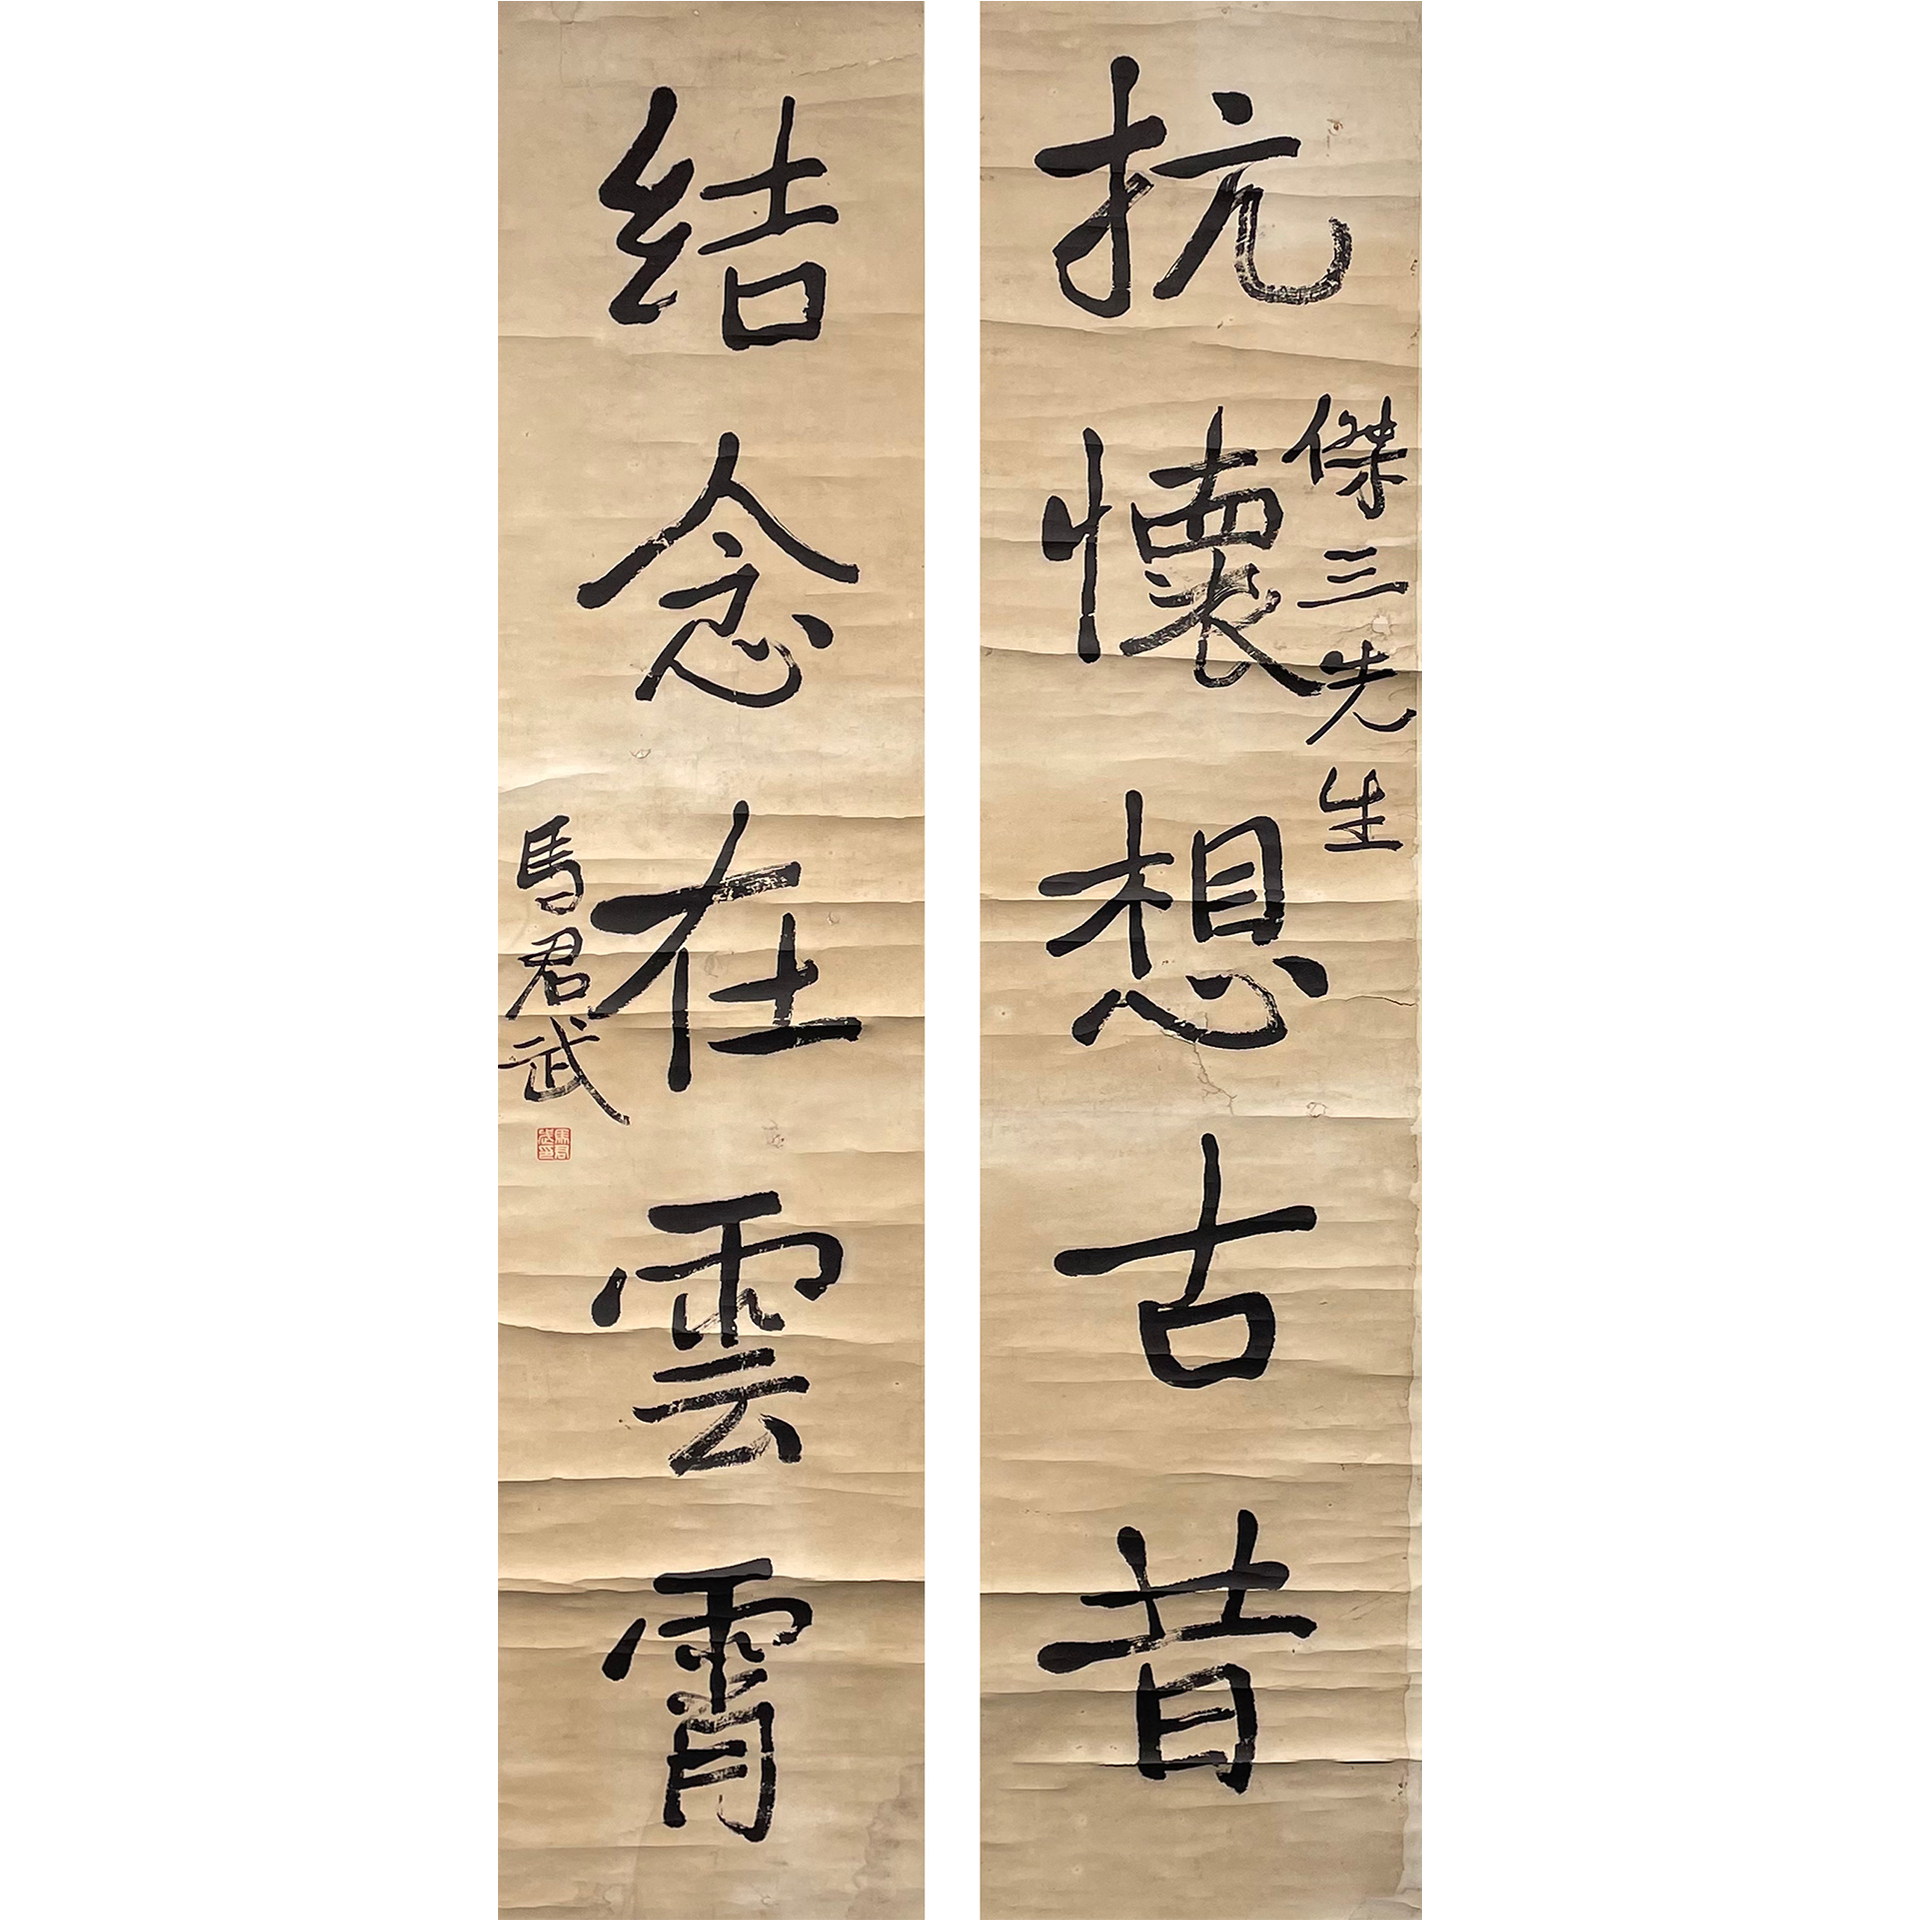 抗懷想古昔
傑三先生
結念在雲霄
馬君武
馬君武印